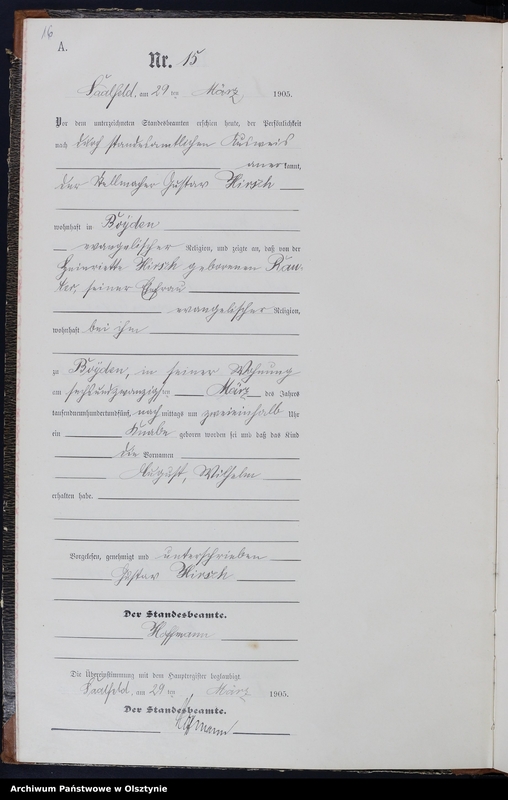 16
A.
Nr. 15
Saalfeld, am 29 ten März 1905.
Vor dem unterzeichneten Standesbeamten erschien heute, der Persönlichkeit
nach durch standesamtlichen Ausweis
anerkannt,
der Stellmacher Gustav Hirsch
wohnhaft in Boyden
evangelischer Religion, und zeigte an, daß von der
Henriette Hirsch geborenen Rau-
ter, seiner Ehefrau
evangelischer Religion,
wohnhaft bei ihm
zu Boyden, in seiner Wohnung
am sechsundzwanzigsten März des Jahres
tausendneunhundertundfünf, nachmittags um zweieinhalb Uhr
ein Knabe geboren worden sei und daß das Kind
die Vornamen
August, Wilhelm
erhalten habe.
Vorgelesen, genehmigt und unterschrieben
Gustav Hirsch
Der Standesbeamte.
Hoffmann
Die Übereinstimmung mit dem Hauptregister beglaubigt
Saalfeld, am 29 ten März 1905.
Der Standesbeamte.
Hoffmann
Archiwum Państwowe w Olsztynie